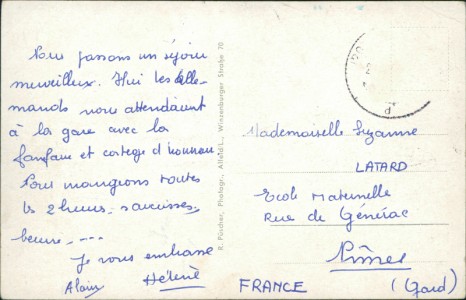 Nous passons un séjour
merveilleux. Hier les Alle-
mands nous attendaient
à la gare avec la
fanfare et cortege d'honneur
Nous mangeons toutes
les 2 heures, saucisses,
beurre, ---
Je vous embrasse
Alain Hélène
R. Püscher, Photogr., Alfeld/L., Winzenburger Straße 70
Mademoiselle Suzanne
LATARD
Ecole Maternelle
Rue de Générac
Nîmes
FRANCE (Gard)